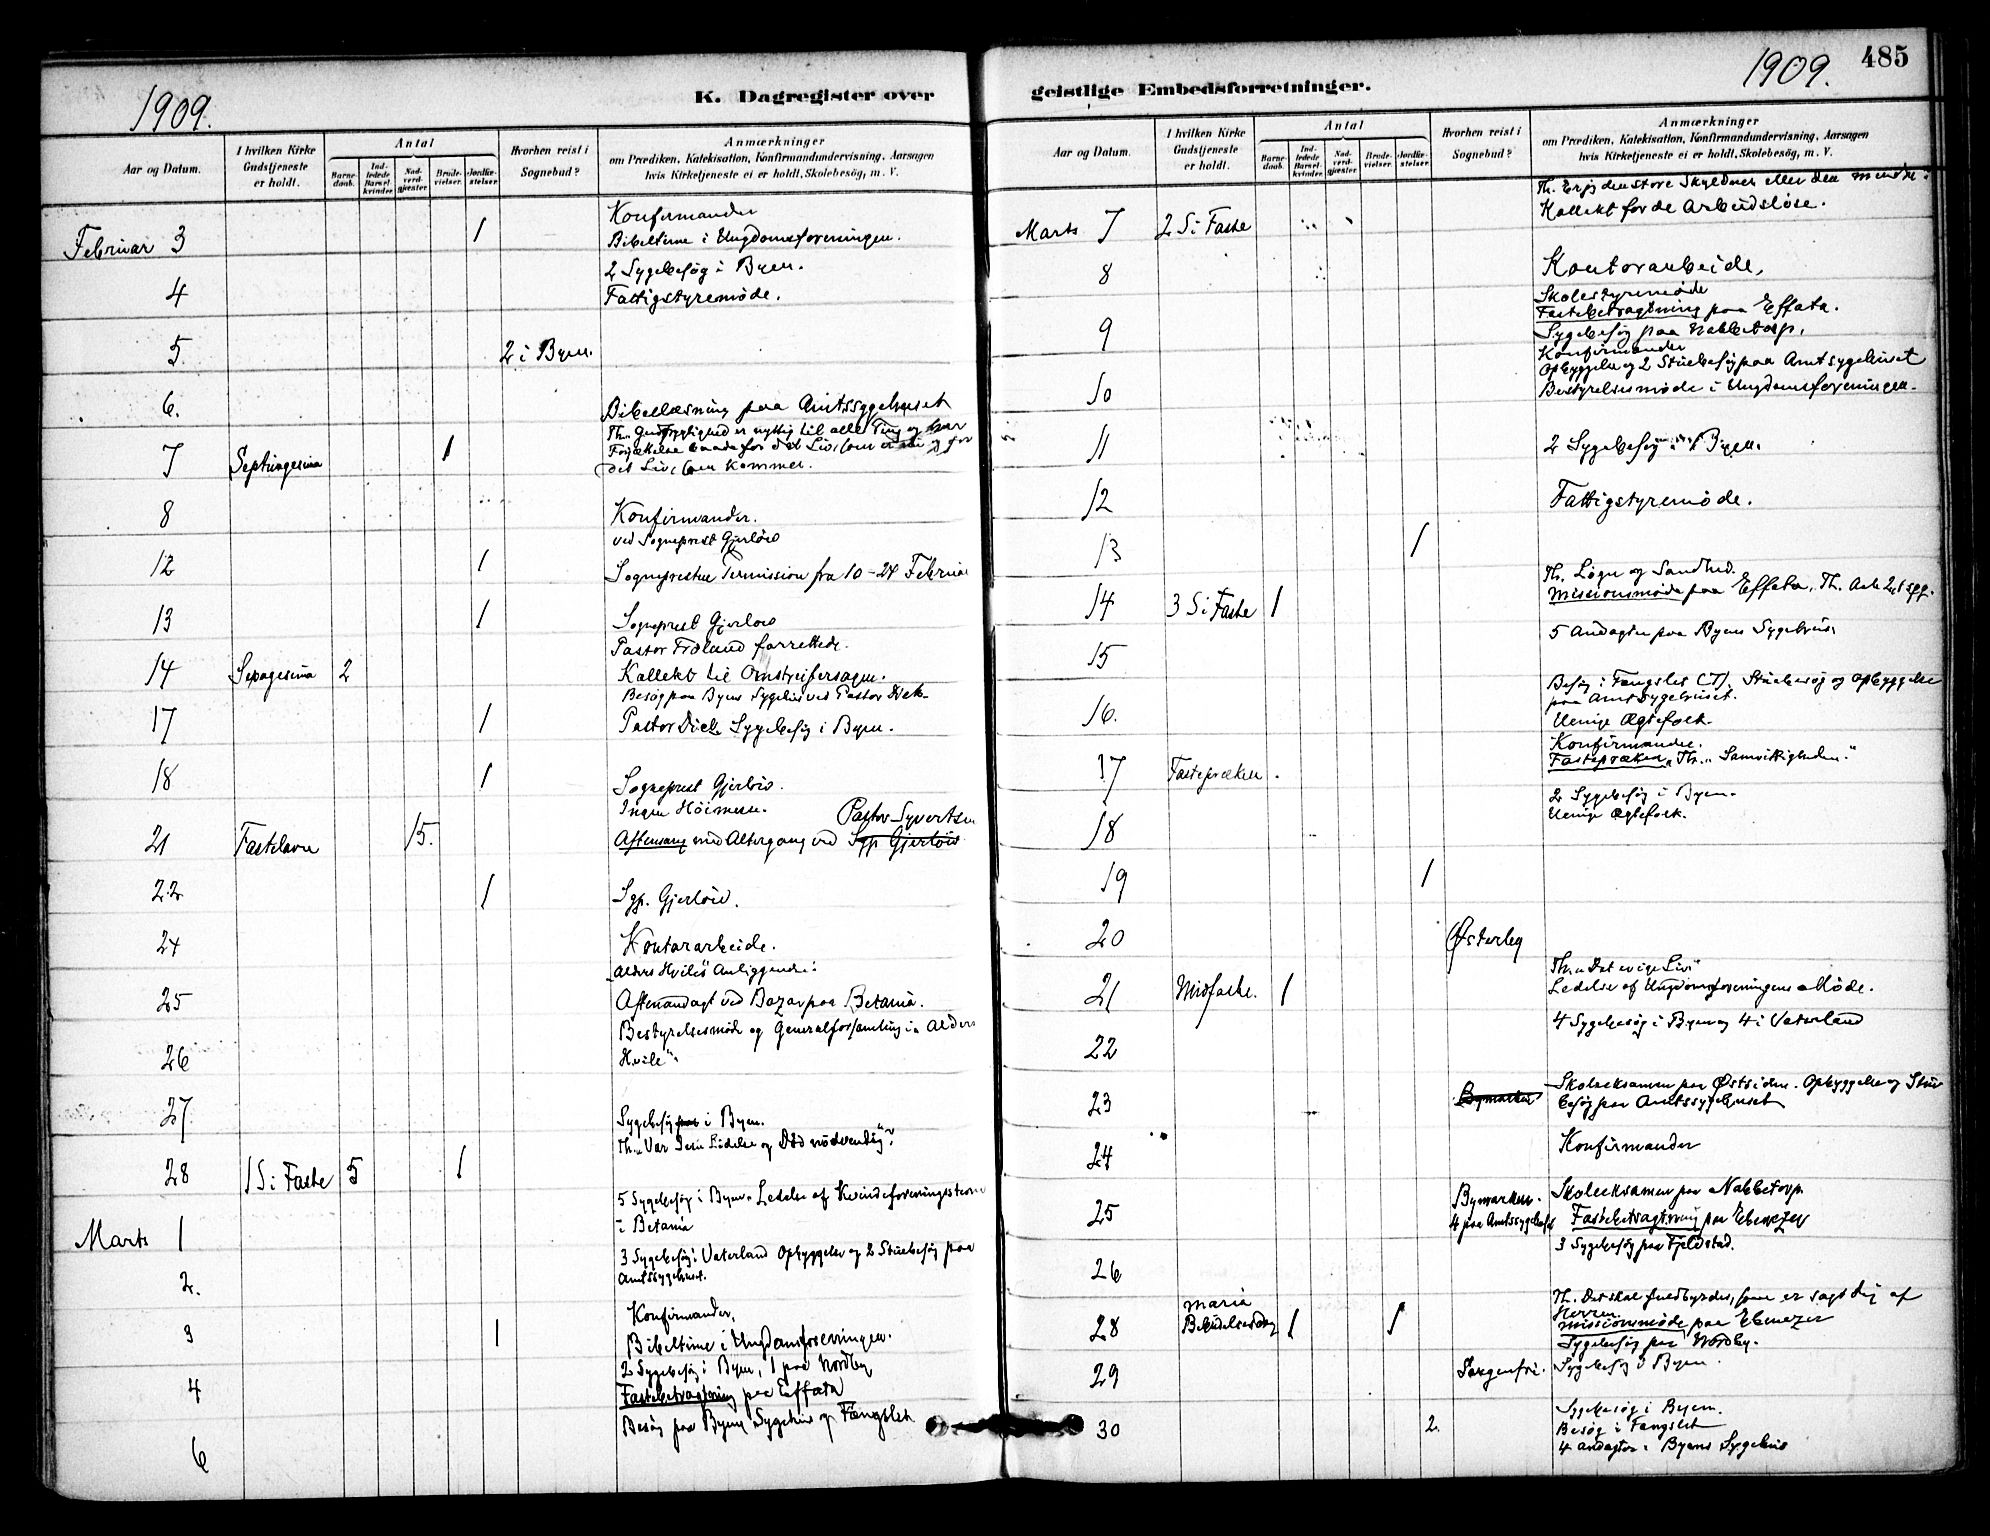 1909.
K. Dagregister over
Aar og Datum.
I hvilken Kirke Gudstjeneste er holdt.
Antal
Barne-daab.
Ind-ledede Barsel-kvinder.
Nad-verd-gjester
Brude-vielser.
Jordfæ-stelser
Hvorhen reist i Sognebud?
Anmærkninger
om Prædiken, Katekisation, Konfirmandundervisning, Aarsagen
hvis Kirketjeneste ei er holdt, Skolebesøg, m. V.
Konfirmander
Februar 3 1 Bibeltime i Ungdomsforeningen.
2 Sygebesøg i Byen.
4 Fattigstyremøde.
5. 2 i Byen.
6. Bibellæsning paa Amtssygehuset
Th. Gudfrygtighed er nyttig til alle Ting og har
Forjættelse baade for det Liv, som er nu og for
7 Septuagesima 1 det Liv, som kommer.
8 Konfirmander.
ved Sogneprest Gjerløw
12 1 Sogneprestens Permission fra 10-24 Februar
13 1 Sogneprest Gjerløw
Pastor Frøland forrettede.
14 Sexagesima 2 Kollekt til Omstreifersagen.
Besøg paa Byens Sygehus ved Pastor Dick
17 1 Pastor Dick Sygebesøg i Byen.
18 1 Sogneprest Gjerløw.
Ingen Høimesse. Pastor Syvertsen
21 Fastelavn 15. Aftensang med Altergang ved Sgp Gjerløw
22 1 Sgp. Gjerløw.
24 Kontorarbeide.
"Alders Hviles" Anliggender.
25 Aftenandagt ved Bazar paa Betania.
Bestyrelsesmøde og Generalforsamling i "Alders
26 Hvile".
27. Sygebesøg paa i Byen.
Th. "Var Jesu Lidelse og Død nødvendig"?
28 1 S i Faste 5 1
5 Sygebesøg i Byen. Ledelse af Kvindeforeningsstevne
Marts 1 i Betania
3 Sygebesøg i Vaterland Opbyggelse og 2 Stuebesøg paa
2. Amtssygehuset.
Konfirmander.
3 1 Bibeltime i Ungdomsforeningen.
2 Sygebesøg i Byen, 1 paa Nordby
4 Fastebetragtning paa Effata
6 Besøg paa Byens Sygehus og Fængslet
1909. 485
geistlige Embedsforretninger.
Aar og Datum.
I hvilken Kirke Gudstjeneste er holdt.
Antal
Barne-daab.
Ind-ledede Barsel-kvinder.
Nad-verd-gjester
Brude-vielser.
Jordfæ-stelser
Hvorhen reist i Sognebud?
Anmærkninger
om Prædiken, Katekisation, Konfirmandundervisning, Aarsagen
hvis Kirketjeneste ei er holdt, Skolebesøg, m. V.
Th. Er jeg den store Skyldner eller den mindre.
Marts 7 2 S i Faste Kollekt for de Arbeidsløse.
8 Kontorarbeide.
Skolestyremøde
Fastebetragtning paa Effata.
9 Sygebesøg paa Nabbetorp.
Konfirmander
Opbyggelse og 2 Stuebesøg paa Amtsygehuset
10 Bestyrelsesmøde i Ungdomsforeningen.
11 2 Sygebesøg i Byen.
12 Fattigstyremøde.
13 1
Th. Løgn og Sandhed.
14 3 S i Faste 1 Missionsmøde paa Effata. Th.
15 5 Andagter paa Byens Sygehus
Besøg i Fængslet Stuebesøg og Opbyggelse
paa Amtsygehuset.
16. Uenige Ægtefolk.
Konfirmander.
17 Fasteprædken. Fasteprædken, Th. "Samvittigheden."
2 Sygebesøg i Byen.
18 Uenige Ægtefolk.
19 1
20 Østerby
Th. "Det evige Liv"
21 Midfaste. 1 Ledelse af Ungdomsforeningens Møde.
22 4 Sygebesøg i Byen og 4 i Vaterland
Skoleeksamen paa Østsiden. Opbyggelse og Stue
23 Bymarken besøg paa Amtssygehuset
24 Konfirmander
Bymarken. Skoleeksamen paa Nabbetorp
25 4 paa Amtssygehuset Fastebetragtning paa Ebenezer
26 3 Sygebesøg paa Fjeldstad.
Th. Det skal fuldbyrdes, som er sagt dig af
Herren.
28 Maria Bebudelsesdag 1 1 Missionsmøde paa Ebenezer
Sygebesøg paa Nordby.
29 Sorgenfri. Sygebesøg i Byen.
Sygebesøg i Byen.
30 2. Besøg i Fængslet
4 Andagter i Byens Sygehus